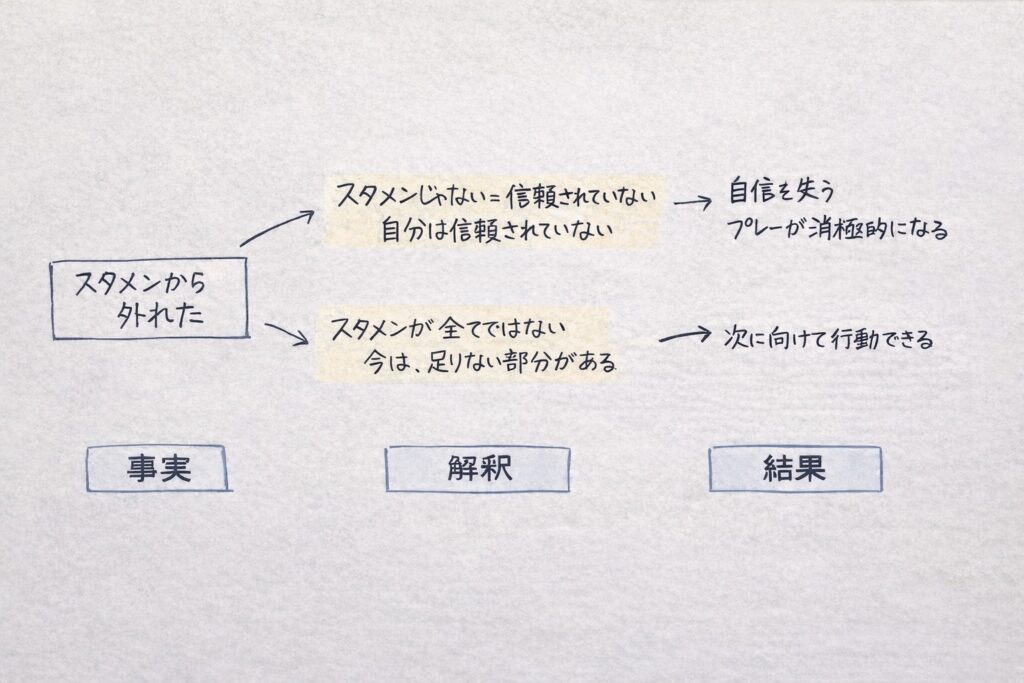 スタメンから
外れた
スタメンじゃない=信頼されていない
自分は信頼されていない
自信を失う
プレーが消極的になる
スタメンが全てではない
今は、足りない部分がある
次に向けて行動できる
事実
解釈
結果